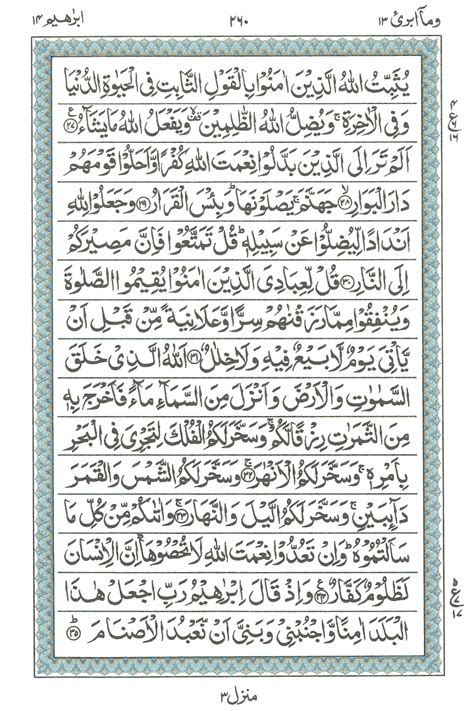 وما ابرئ ١٣ ٢٦٠ ابرٰهيم ١٤
يُثَبِّتُ اللّٰهُ الَّذِيْنَ اٰمَنُوْا بِالْقَوْلِ الثَّابِتِ فِى الْحَيٰوةِ الدُّنْيَا
وَفِى الْاٰخِرَةِ ۚ وَيُضِلُّ اللّٰهُ الظّٰلِمِيْنَ ۙ وَيَفْعَلُ اللّٰهُ مَا يَشَآءُ ﴿٢٧﴾
اَلَمْ تَرَ اِلَى الَّذِيْنَ بَدَّلُوْا نِعْمَتَ اللّٰهِ كُفْرًا وَّاَحَلُّوْا قَوْمَهُمْ
دَارَ الْبَوَارِ ﴿٢٨﴾ جَهَنَّمَ ۚ يَصْلَوْنَهَا ؕ وَبِئْسَ الْقَرَارُ ﴿٢٩﴾ وَجَعَلُوْا لِلّٰهِ
اَنْدَادًا لِّيُضِلُّوْا عَنْ سَبِيْلِهٖ ؕ قُلْ تَمَتَّعُوْا فَاِنَّ مَصِيْرَكُمْ
اِلَى النَّارِ ﴿٣٠﴾ قُلْ لِّعِبَادِىَ الَّذِيْنَ اٰمَنُوْا يُقِيْمُوا الصَّلٰوةَ
وَيُنْفِقُوْا مِمَّا رَزَقْنٰهُمْ سِرًّا وَّعَلَانِيَةً مِّنْ قَبْلِ اَنْ
يَّاْتِىَ يَوْمٌ لَّا بَيْعٌ فِيْهِ وَلَا خِلٰلٌ ﴿٣١﴾ اَللّٰهُ الَّذِىْ خَلَقَ
السَّمٰوٰتِ وَالْاَرْضَ وَاَنْزَلَ مِنَ السَّمَآءِ مَآءً فَاَخْرَجَ بِهٖ
مِنَ الثَّمَرٰتِ رِزْقًا لَّكُمْ ۚ وَسَخَّرَ لَكُمُ الْفُلْكَ لِتَجْرِىَ فِى الْبَحْرِ
بِاَمْرِهٖ ۚ وَسَخَّرَ لَكُمُ الْاَنْهٰرَ ﴿٣٢﴾ وَسَخَّرَ لَكُمُ الشَّمْسَ وَالْقَمَرَ
دَآئِبَيْنِ ۚ وَسَخَّرَ لَكُمُ الَّيْلَ وَالنَّهَارَ ﴿٣٣﴾ وَاٰتٰىكُمْ مِّنْ كُلِّ مَا
سَاَلْتُمُوْهُ ؕ وَاِنْ تَعُدُّوْا نِعْمَتَ اللّٰهِ لَا تُحْصُوْهَا ؕ اِنَّ الْاِنْسَانَ
لَظَلُوْمٌ كَفَّارٌ ﴿٣٤﴾ وَاِذْ قَالَ اِبْرٰهِيْمُ رَبِّ اجْعَلْ هٰذَا
الْبَلَدَ اٰمِنًا وَّاجْنُبْنِىْ وَبَنِىَّ اَنْ نَّعْبُدَ الْاَصْنَامَ ﴿٣٥﴾
٤ ع ١٦
٥ ع ١٧
منزل ٣